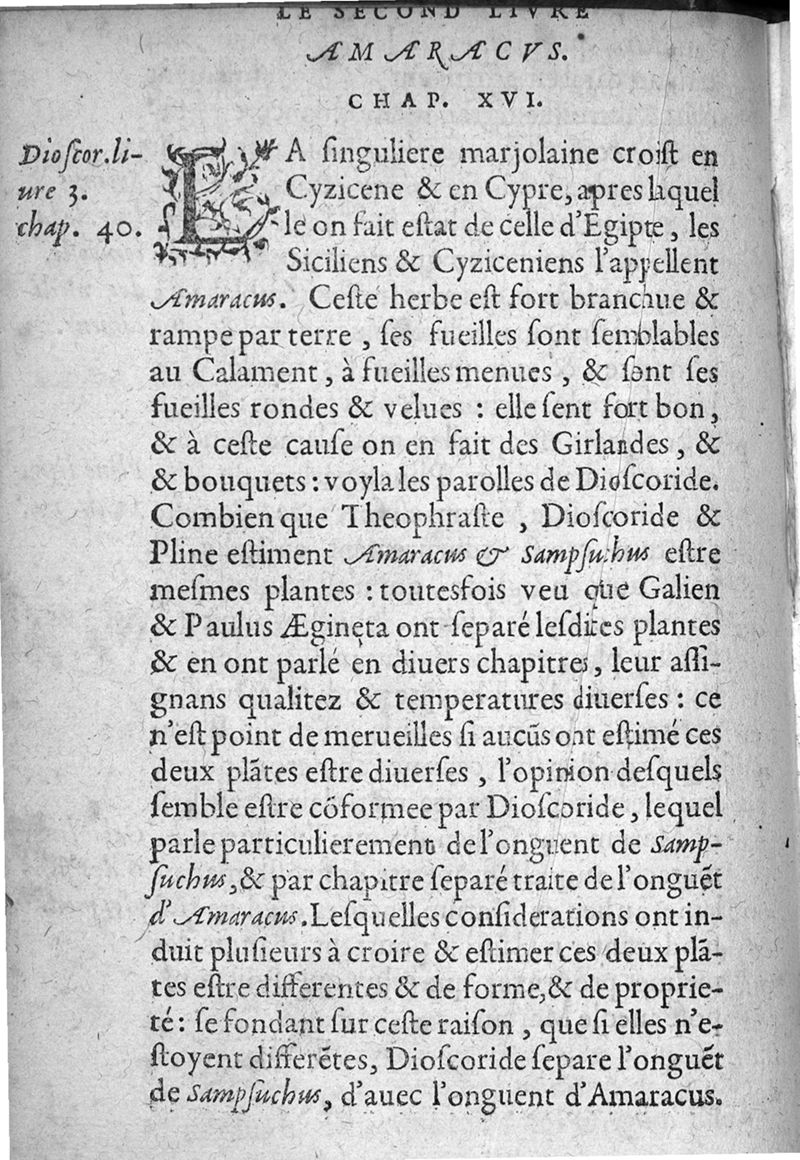 LE SECOND LIVRE
AMARACVS.
CHAP. XVI.
Dioſcor.li-
ure 3.
chap. 40.
LA ſinguliere marjolaine croiſt en
Cyzicene & en Cypre, apres laquel
le on fait eſtat de celle d'Egipte, les
Siciliens & Cyziceniens l'appellent
Amaracus. Ceſte herbe eſt fort branchue &
rampe par terre, ſes fueilles ſont ſemblables
au Calament, à fueilles menues, & ſont ſes
fueilles rondes & velues : elle ſent fort bon,
& à ceſte cauſe on en fait des Girlandes, &
& bouquets : voyla les parolles de Dioſcoride.
Combien que Theophraſte, Dioſcoride &
Pline eſtiment Amaracus & Sampſuchus eſtre
meſmes plantes : toutesfois veu que Galien
& Paulus Ægineta ont ſeparé leſdites plantes
& en ont parlé en diuers chapitres, leur aſſi-
gnans qualitez & temperatures diuerſes : ce
n'eſt point de merueilles ſi aucũs ont eſtimé ces
deux plãtes eſtre diuerſes, l'opinion deſquels
ſemble eſtre cõformee par Dioſcoride, lequel
parle particulierement de l'onguent de Samp-
ſuchus, & par chapitre ſeparé traite de l'onguẽt
d'Amaracus. Leſquelles conſiderations ont in-
duit pluſieurs à croire & eſtimer ces deux plã-
tes eſtre differentes & de forme, & de proprie-
té : ſe fondant ſur ceſte raiſon, que ſi elles n'e-
ſtoyent differẽtes, Dioſcoride ſepare l'onguẽt
de Sampſuchus, d'auec l'onguent d'Amaracus.